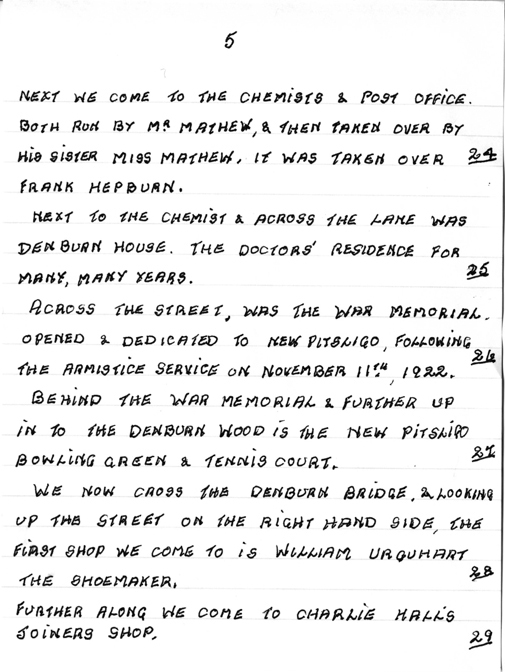 5
NEXT WE COME TO THE CHEMISTS & POST OFFICE.
BOTH RUN BY MR MATHEW, & THEN TAKEN OVER BY
HIS SISTER MISS MATHEW. IT WAS TAKEN OVER 24
FRANK HEPBURN.
NEXT TO THE CHEMIST & ACROSS THE LANE WAS
DENBURN HOUSE. THE DOCTORS' RESIDENCE FOR
MANY, MANY YEARS. 25
ACROSS THE STREET, WAS THE WAR MEMORIAL.
OPENED & DEDICATED TO NEW PITSLIGO, FOLLOWING
THE ARMISTICE SERVICE ON NOVEMBER 11TH, 1922. 26
BEHIND THE WAR MEMORIAL & FURTHER UP
IN TO THE DENBURN WOOD IS THE NEW PITSLIGO
BOWLING GREEN & TENNIS COURT. 27
WE NOW CROSS THE DENBURN BRIDGE, & LOOKING
UP THE STREET ON THE RIGHT HAND SIDE, THE
FIRST SHOP WE COME TO IS WILLIAM URQUHART
THE SHOEMAKER. 28
FURTHER ALONG WE COME TO CHARLIE HALL'S
JOINERS SHOP. 29